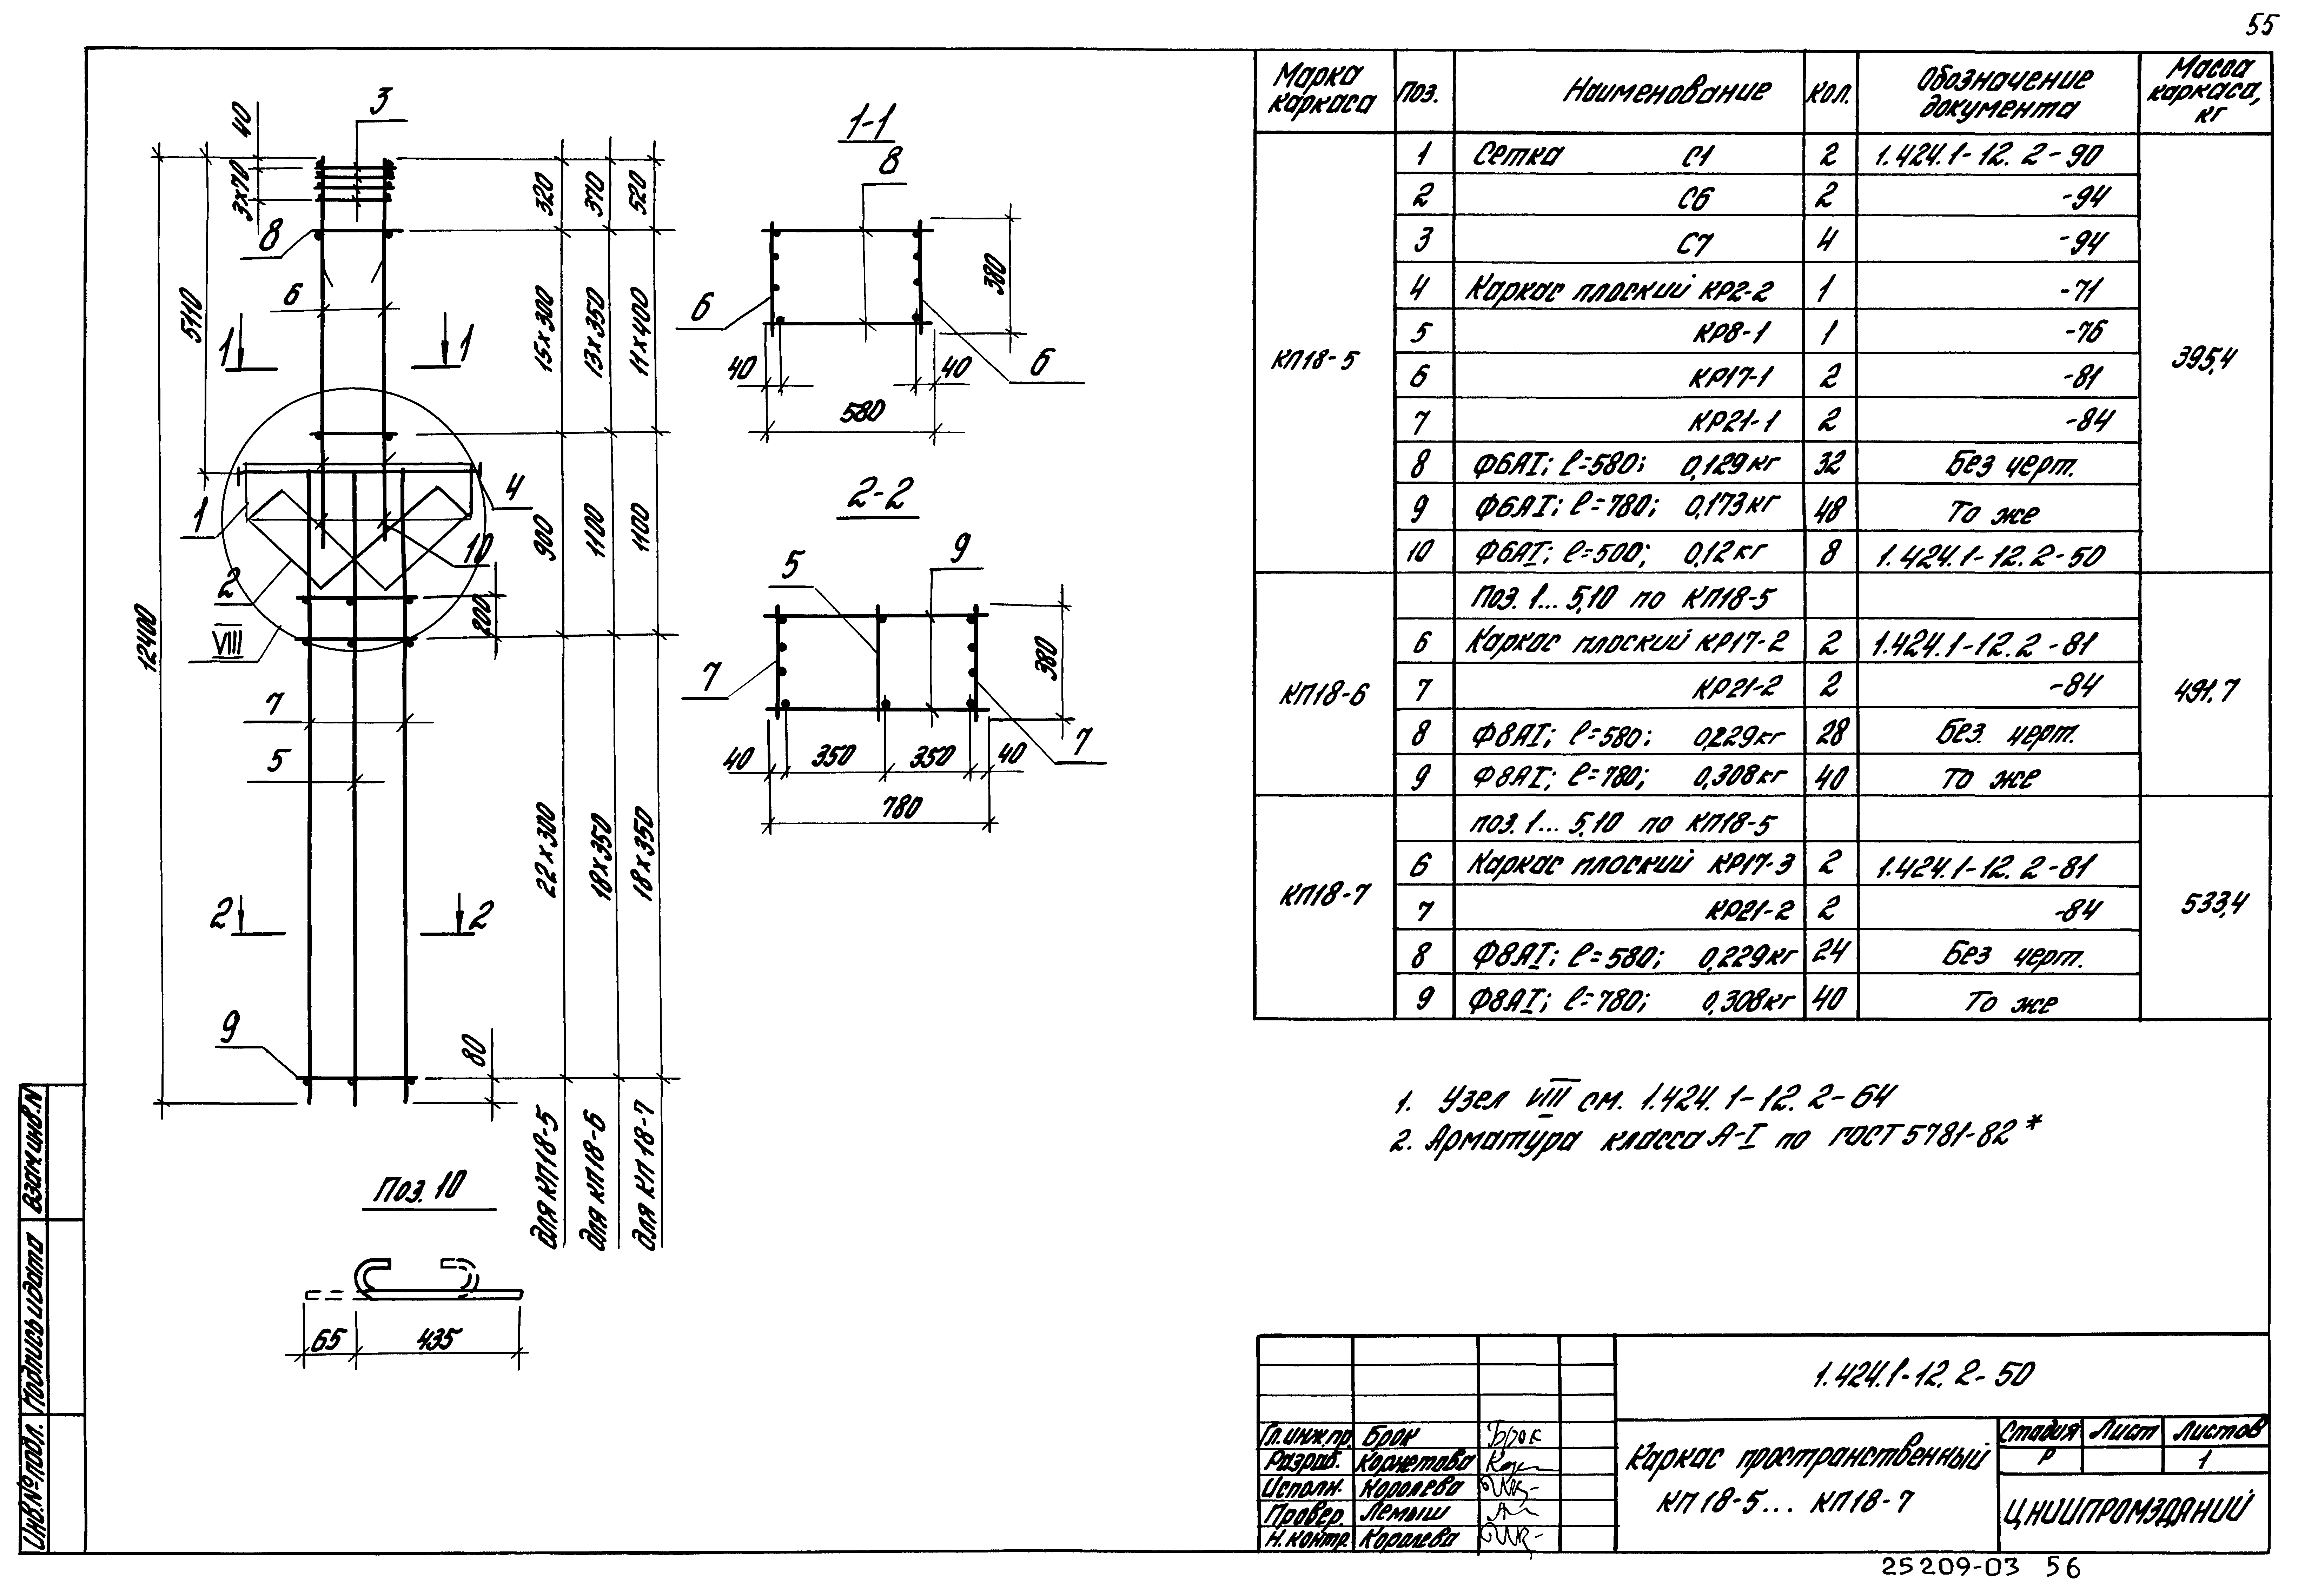 55
3
40
3×70
8
6
5110
12400
1
1
1
4
10
2
VIII
200
7
5
2
2
9
80
320
370
520
15×300
13×350
11×400
900
1100
1100
22×300
18×350
18×350
для КП18-5
для КП18-6
для КП18-7
1-1
8
6
6
380
40
40
580
2-2
5
9
7
7
380
40
350
350
40
780
Поз. 10
65
435
Марка каркаса
Поз.
Наименование
Кол.
Обозначение документа
Масса каркаса, кг
КП18-5
395,4
1 Сетка С1 2 1.424.1-12.2-90
2 С6 2 -94
3 С7 4 -94
4 Каркас плоский КР2-2 1 -71
5 КР8-1 1 -76
6 КР17-1 2 -81
7 КР21-1 2 -84
8 Ф6АI; ℓ=580; 0,129кг 32 Без черт.
9 Ф6АI; ℓ=780; 0,173кг 48 То же
10 Ф6АI; ℓ=500; 0,12кг 8 1.424.1-12.2-50
КП18-6
491,7
Поз. 1... 5,10 по КП18-5
6 Каркас плоский КР17-2 2 1.424.1-12.2-81
7 КР21-2 2 -84
8 Ф8АI; ℓ=580; 0,229кг 28 Без черт.
9 Ф8АI; ℓ=780; 0,308кг 40 То же
КП18-7
533,4
поз. 1... 5,10 по КП18-5
6 Каркас плоский КР17-3 2 1.424.1-12.2-81
7 КР21-2 2 -84
8 Ф8АI; ℓ=580; 0,229кг 24 Без черт.
9 Ф8АI; ℓ=780; 0,308кг 40 То же
1. Узел VIII см. 1.424.1-12.2-64
2. Арматура класса А-I по ГОСТ 5781-82*
1.424.1-12.2-50
Гл.инж.пр. Брок Брок
Разраб. Корнетова
Исполн. Королева
Провер. Лемыш
Н.контр. Королева
Каркас пространственный
КП18-5... КП18-7
Стадия Лист Листов
Р 1
ЦНИИПРОМЗДАНИЙ
25209-03 56
Взам.инв.N
Подпись и дата
Инв.№ подл.